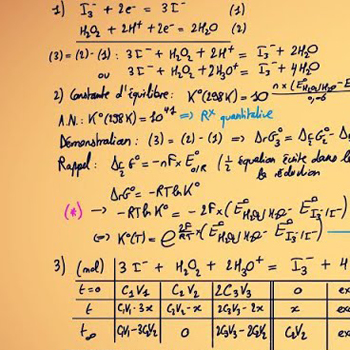 1) I₃⁻ + 2e⁻ = 3I⁻ (1)
H₂O₂ + 2H⁺ + 2e⁻ = 2H₂O (2)
(3) = (2) - (1) : 3I⁻ + H₂O₂ + 2H⁺ = I₃⁻ + 2H₂O
ou 3I⁻ + H₂O₂ + 2H₃O⁺ = I₃⁻ + 4H₂O
2) Constante d'équilibre : K°(298K) = 10^(n×(E°H₂O₂/H₂O - E°/0,06
A.N.: K°(298K) = 10⁴¹ ⇒ Rˣ quantitative
Démonstration : (3) = (2) - (1) ⇒ ΔrG₃° = ΔrG₂° - Δ
Rappel : ΔrG° = -nF×E°O/R (½ équation écrite dans le
la réduction
ΔrG° = -RT ln K°
(*) → -RT ln K° = -2F×(E°H₂O₂/H₂O - E°I₃⁻/I⁻)
⇔ K°(T) = e^(2F/RT)×(E°H₂O₂/H₂O - E°I₃⁻/I⁻)
3) (mol) | 3I⁻ + H₂O₂ + 2H₃O⁺ = I₃⁻ + 4
t=0 | C₁V₁ | C₂V₂ | 2C₃V₃ | 0 | exc
t | C₁V₁-3x | C₂V₂-x | 2C₃V₃-2x | x | exc
t∞ | C₁V₁-3C₂V₂ | 0 | 2C₃V₃-2C₂V₂ | C₂V₂ | exc